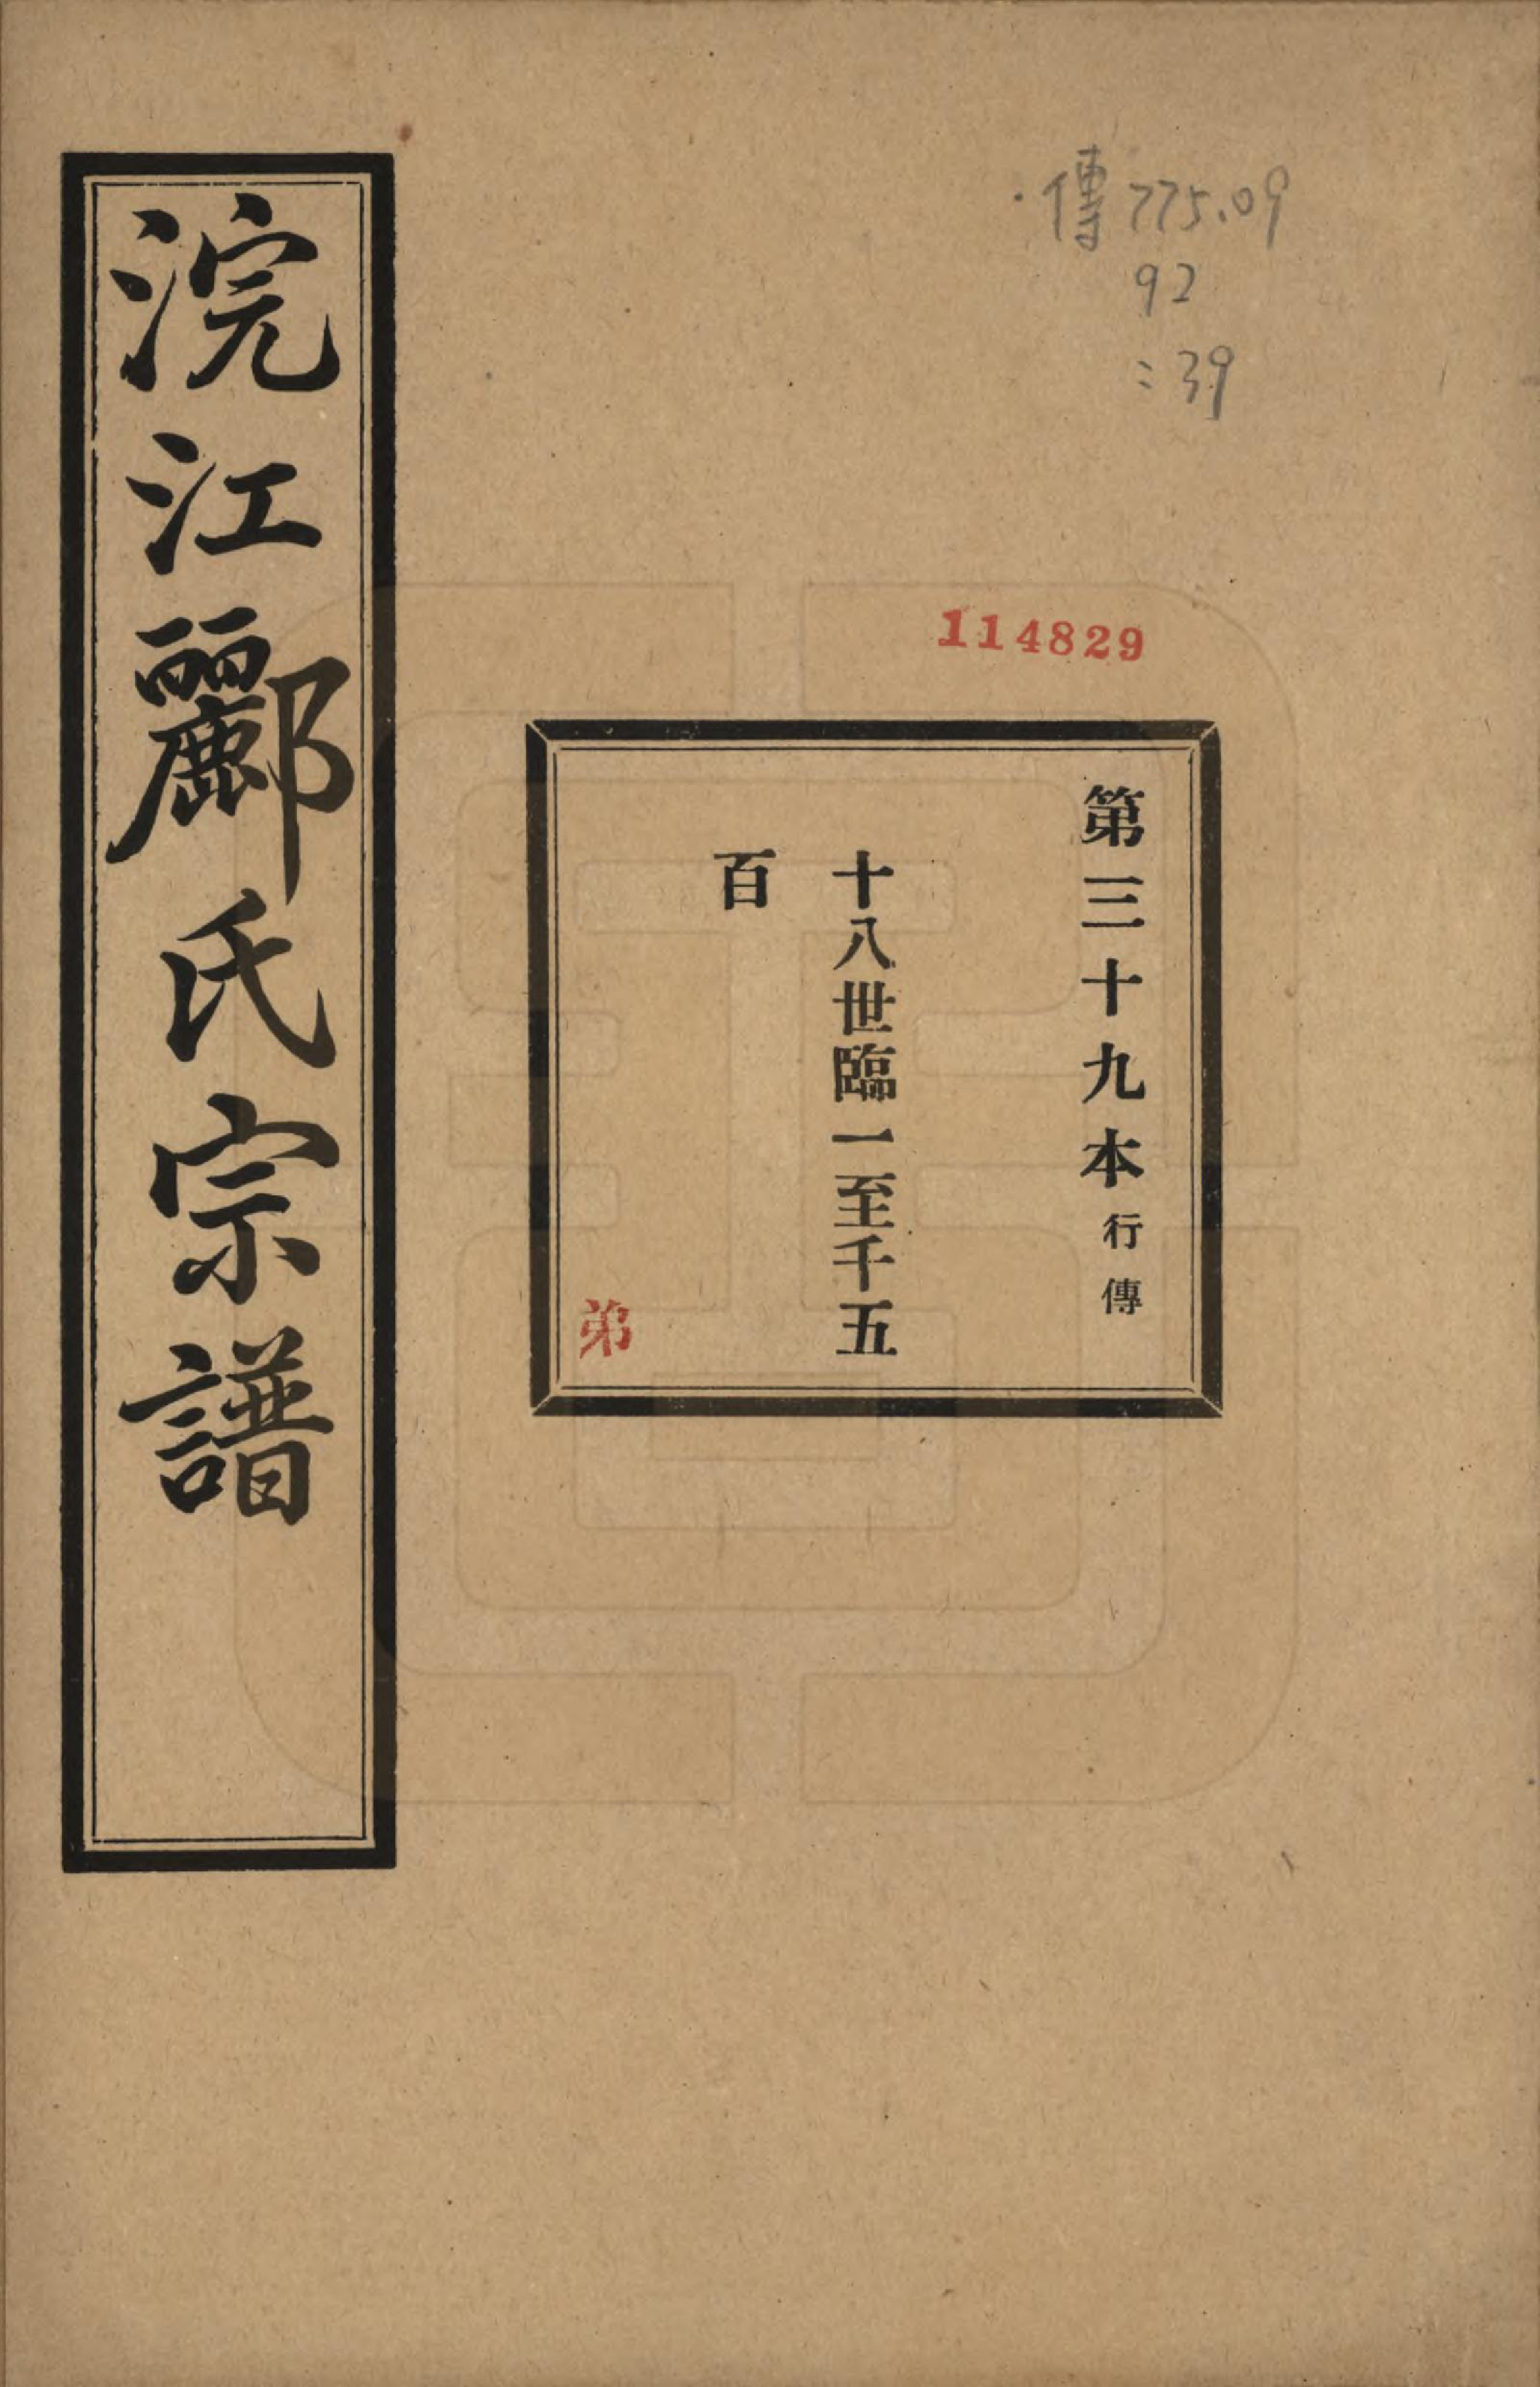 傳775.09
92
:39
114829
第三十九本行傳
十八世臨一至千五
百
弟
浣江酈氏宗譜